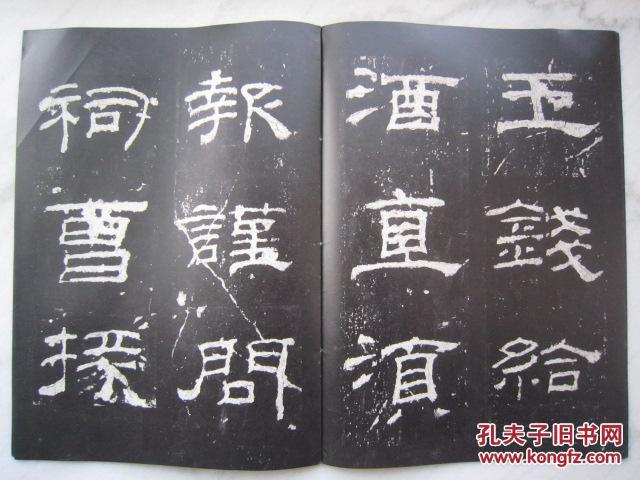 王錢給
酒直須
報謹問
祠曹掾
孔夫子旧书网
www.kongfz.com